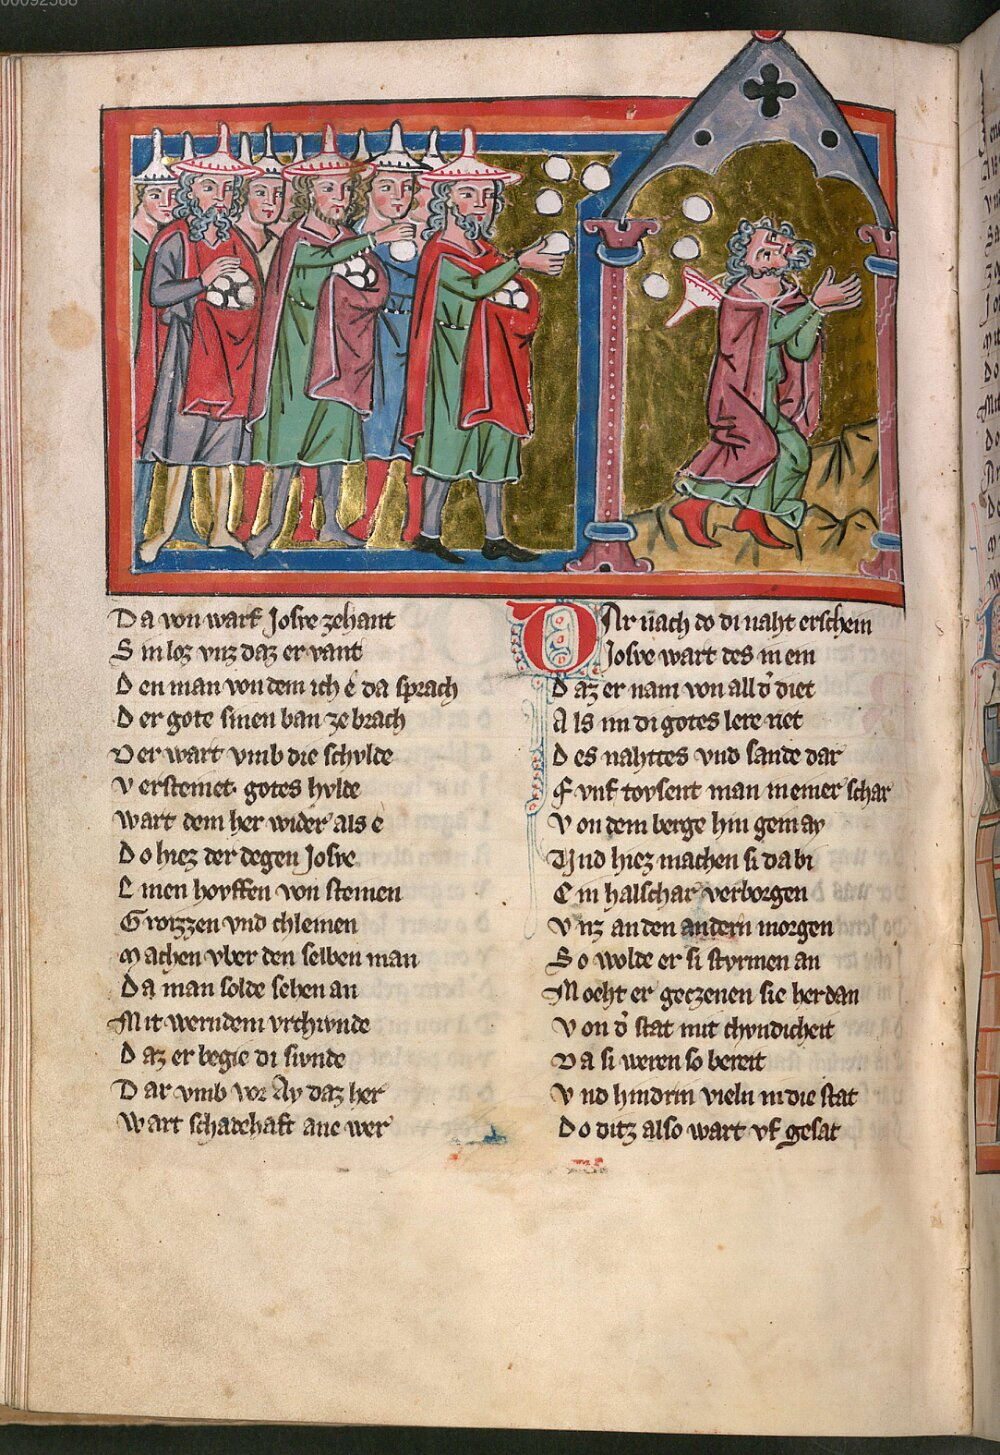 Da von warf Josve zehant
Sin loz vnz daz er vant
Den man von dem ich e da sprach
Der gote sinen ban ze brach
Der wart vmb die schvlde
Versteinet. gotes hvlde
Wart dem her wider als e
Do hiez der degen Josve
Einen hovffen von steinen
Grozzen vnd chleinen
Machen vber den selben man
Da man solde sehen an
Mit werndem vrchvnde
Daz er begie di svnde
Dar vmb vor Ay daz her
Wart schadehaft ane wer
DAr nach do di naht erschein
Josve wart des in ein
Daz er nam von all d' diet
Als im di gotes lere riet
Des nahttes vnd sande dar
Fvnf tovsent man in einer schar
Von dem berge hin gein ay
Vnd hiez machen si da bi
Ein halschar verborgen
Vnz an den andern morgen
So wolde er si stvrmen an
Moeht er geczenen sie herdan
Von d' stat mit chvndicheit
Da si weren so bereit
Vnd hindrin vieln in die stat
Do ditz also wart vf gesat